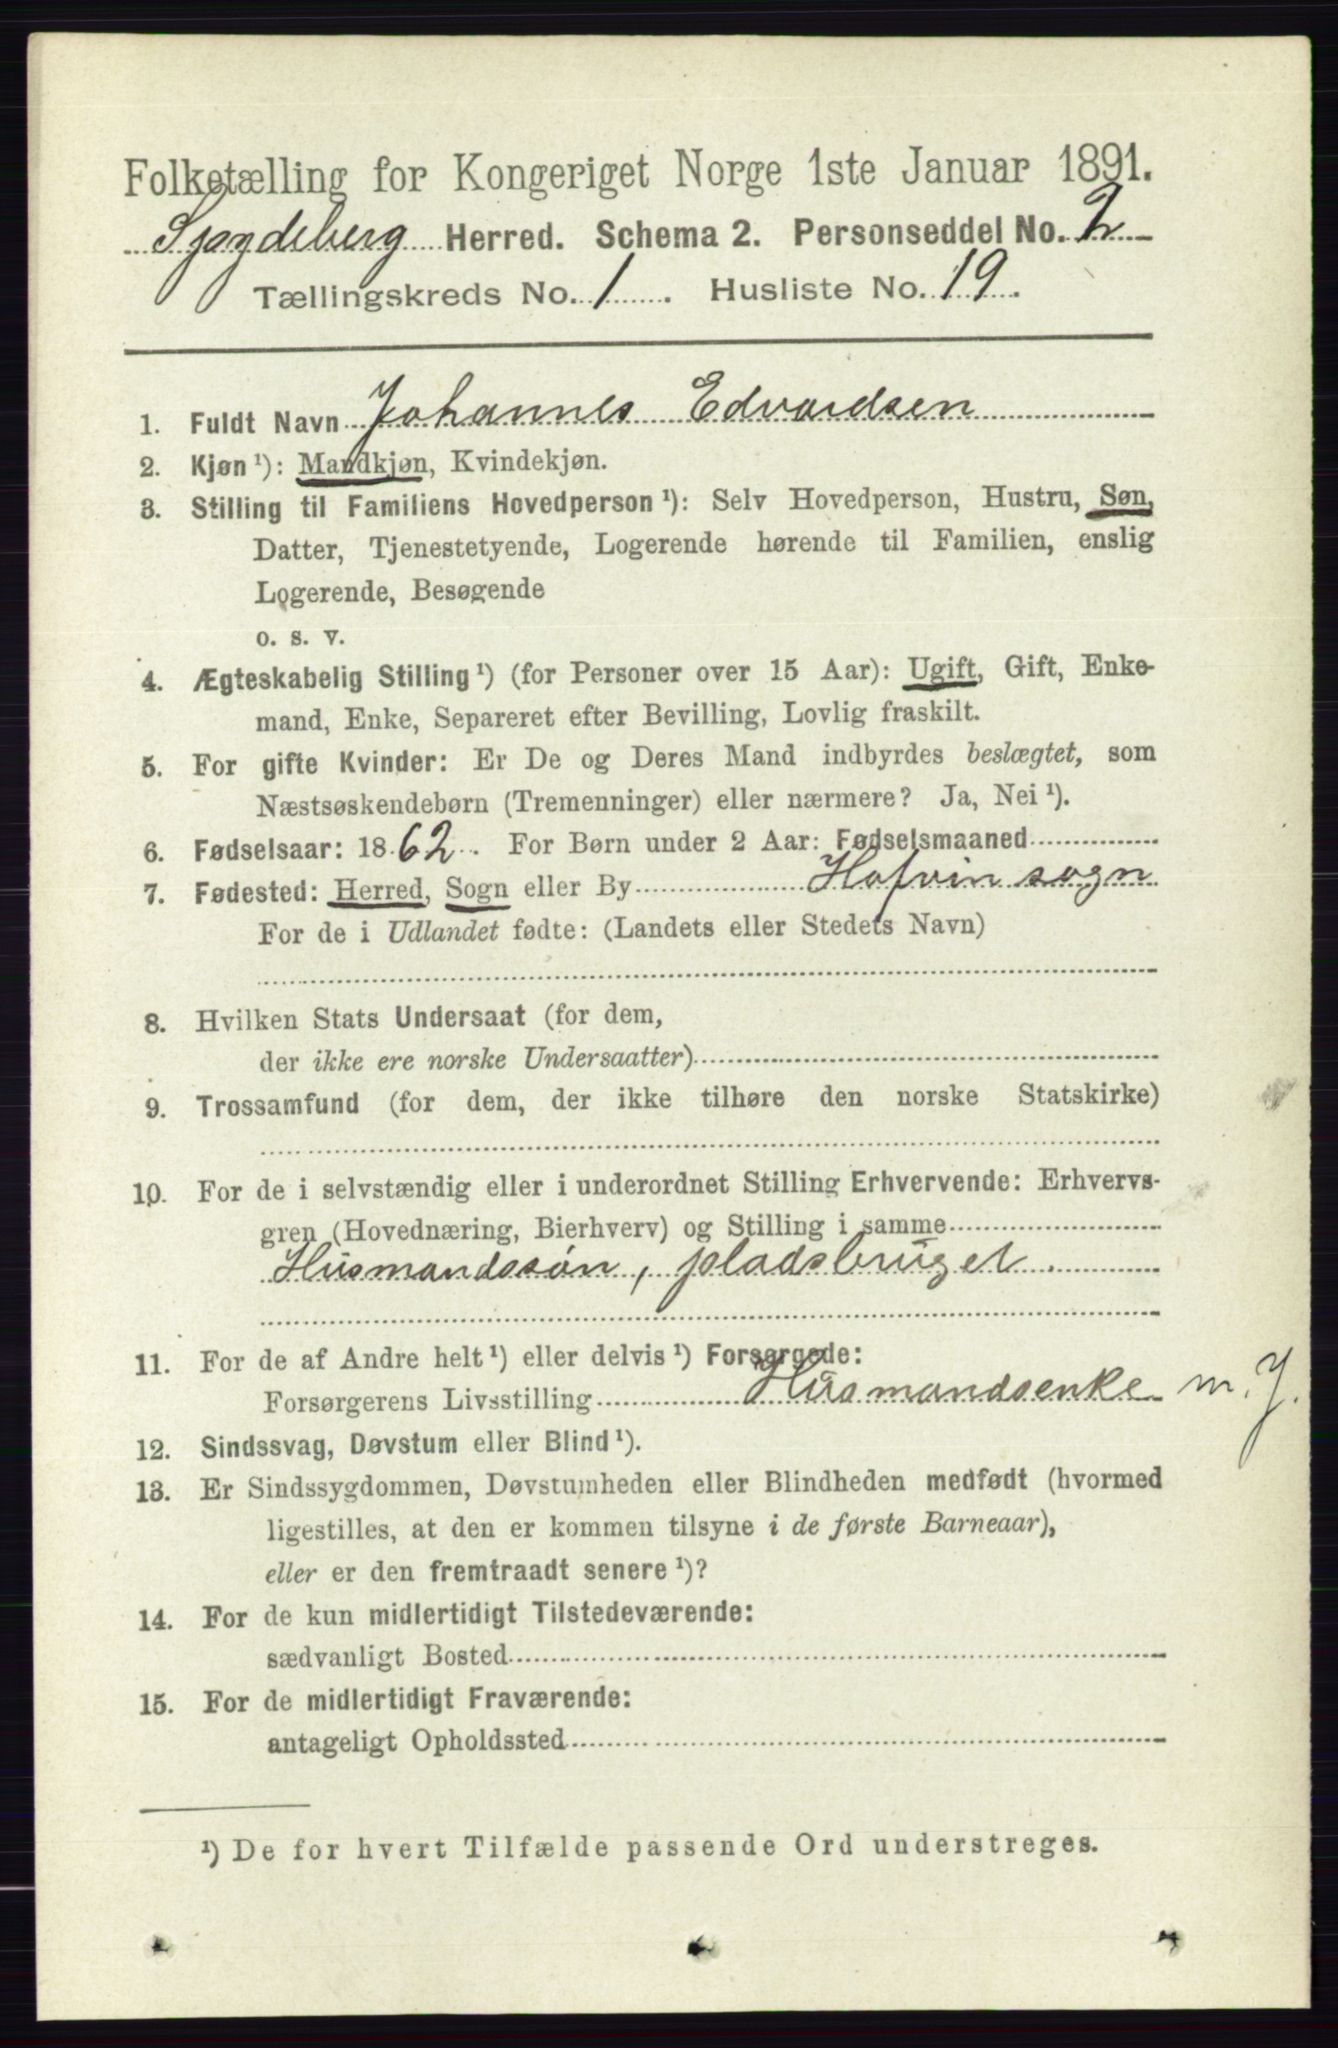 Folketælling for Kongeriget Norge 1ste Januar 1891.
Herred. Schema 2. Personseddel No. 2
Tællingskreds No. 1. Husliste No. 19.
1. Fuldt Navn Johannes Edvardsen
2. Kjøn ¹): Mandkjøn, Kvindekjøn.
3. Stilling til Familiens Hovedperson ¹): Selv Hovedperson, Hustru, Søn,
Datter, Tjenestetyende, Logerende hørende til Familien, enslig
Logerende, Besøgende
o. s. v.
4. Ægteskabelig Stilling ¹) (for Personer over 15 Aar): Ugift, Gift, Enke-
mand, Enke, Separeret efter Bevilling, Lovlig fraskilt.
5. For gifte Kvinder: Er De og Deres Mand indbyrdes beslægtet, som
Næstsøskendebørn (Tremenninger) eller nærmere? Ja, Nei ¹).
6. Fødselsaar: 1862. For Børn under 2 Aar: Fødselsmaaned
7. Fødested: Herred, Sogn eller By Hofvin sogn
For de i Udlandet fødte: (Landets eller Stedets Navn)
8. Hvilken Stats Undersaat (for dem,
der ikke ere norske Undersaatter)
9. Trossamfund (for dem, der ikke tilhøre den norske Statskirke)
10. For de i selvstændig eller i underordnet Stilling Erhvervende: Erhvervs-
gren (Hovednæring, Bierhverv) og Stilling i samme
Husmandssøn, pladsbruget.
11. For de af Andre helt ¹) eller delvis ¹) Forsørgede:
Forsørgerens Livsstilling Husmandsenke m. J.
12. Sindssvag, Døvstum eller Blind ¹).
13. Er Sindssygdommen, Døvstumheden eller Blindheden medfødt (hvormed
ligestilles, at den er kommen tilsyne i de første Barneaar),
eller er den fremtraadt senere ¹)?
14. For de kun midlertidigt Tilstedeværende:
sædvanligt Bosted
15. For de midlertidigt Fraværende:
antageligt Opholdssted
¹) De for hvert Tilfælde passende Ord understreges.